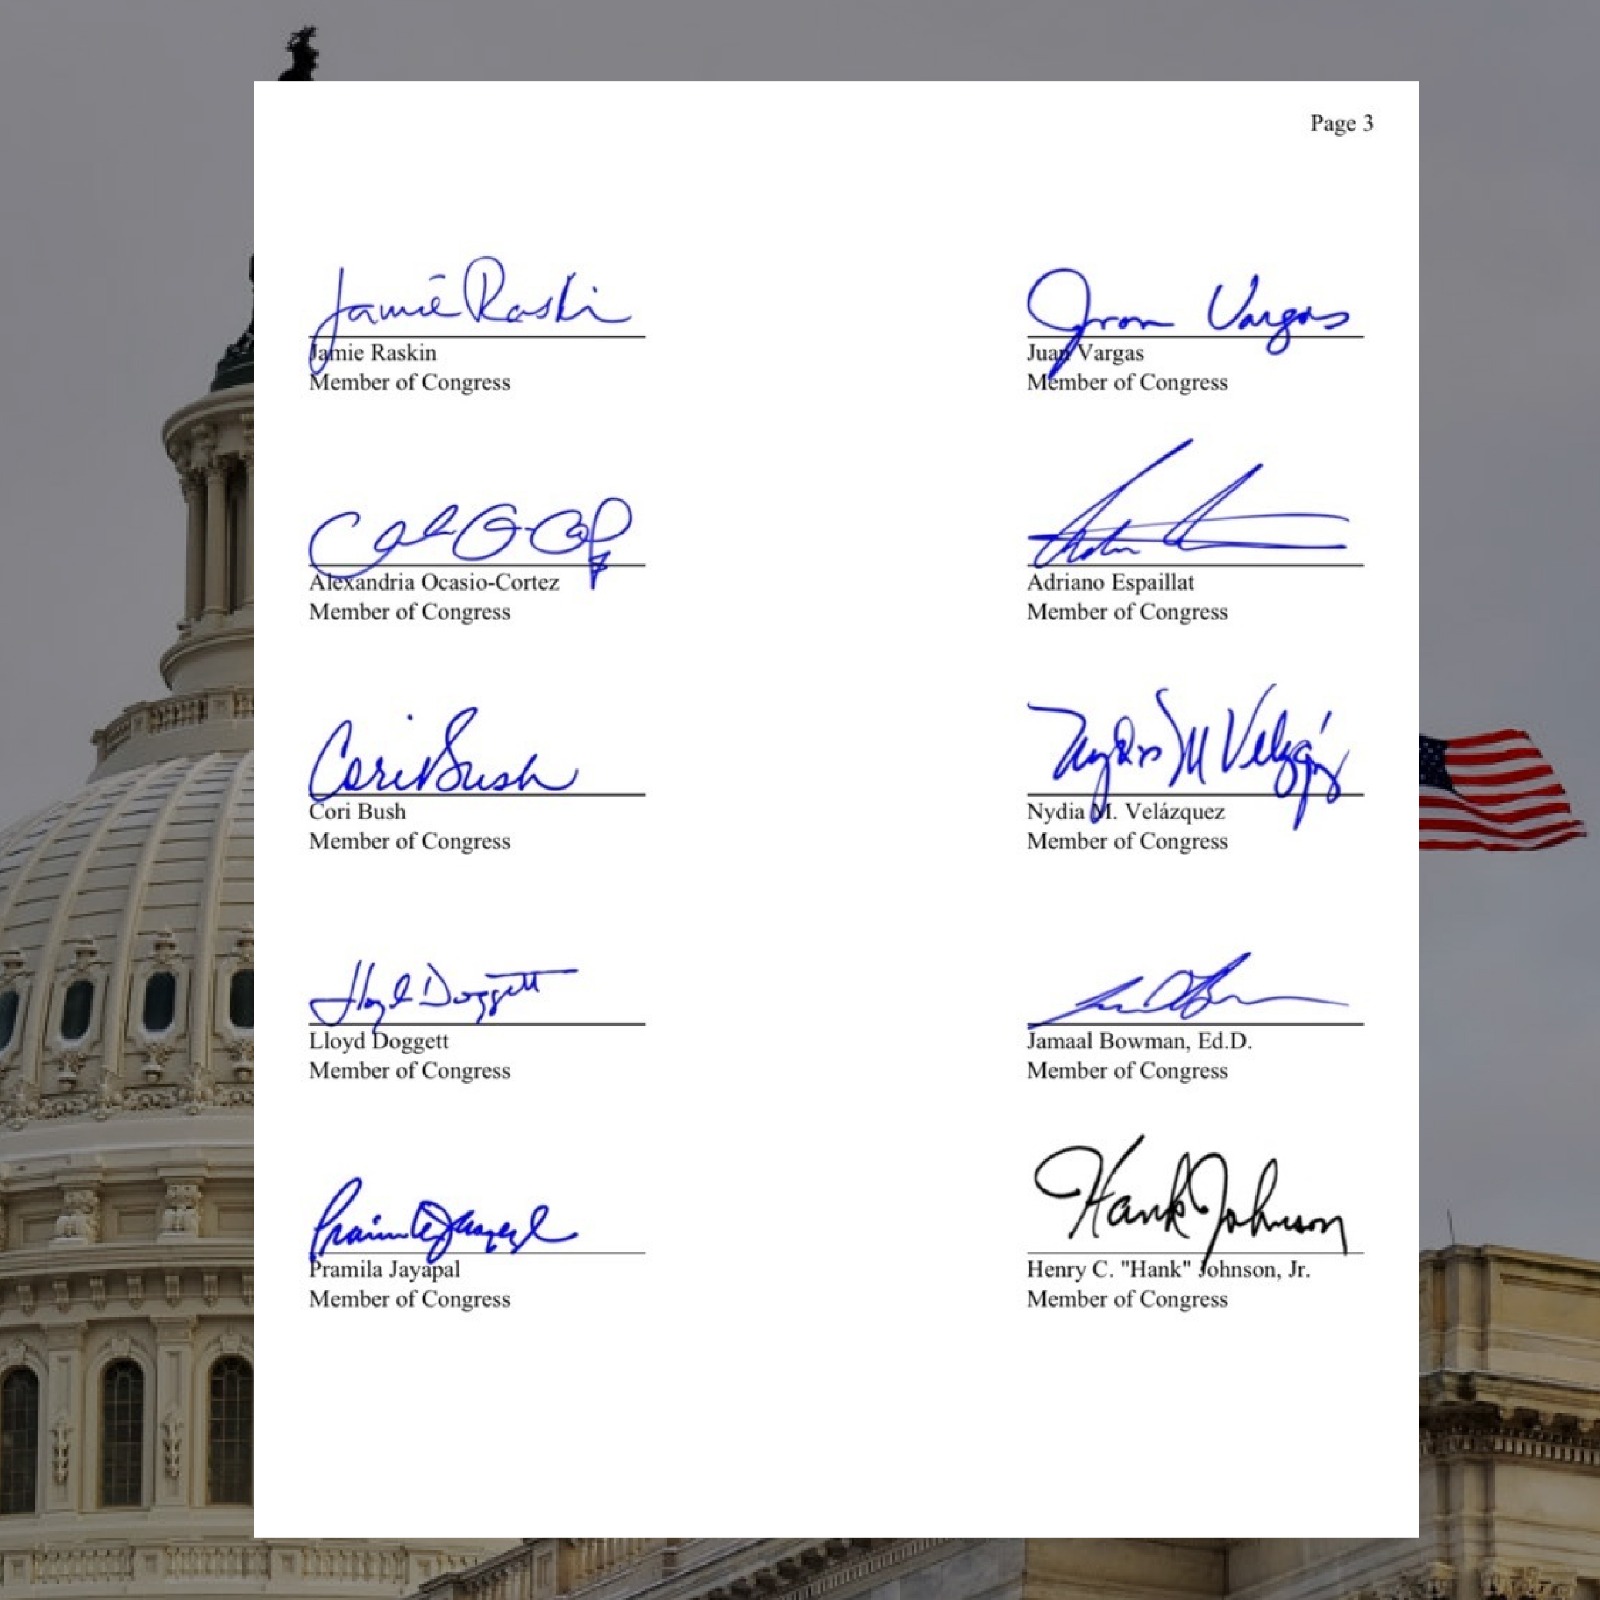 Page 3
Jamie Raskin
Jamie Raskin
Member of Congress
Juan Vargas
Juan Vargas
Member of Congress
Alexandria Ocasio-Cortez
Member of Congress
Adriano Espaillat
Member of Congress
Cori Bush
Cori Bush
Member of Congress
Nydia M Velázquez
Nydia M. Velázquez
Member of Congress
Lloyd Doggett
Lloyd Doggett
Member of Congress
Jamaal Bowman, Ed.D.
Member of Congress
Pramila Jayapal
Pramila Jayapal
Member of Congress
Hank Johnson
Henry C. "Hank" Johnson, Jr.
Member of Congress